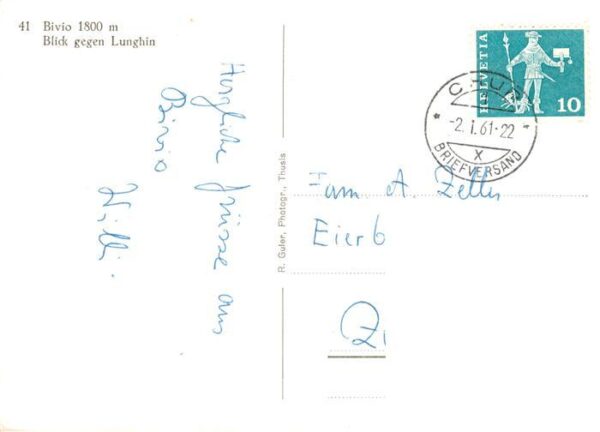 41 Bivio 1800 m
Blick gegen Lunghin
Herzliche Grüsse aus
Bivio
Willi.
R. Guler, Photogr., Thusis
HELVETIA
10
CHUR
-2.I.61-22
X
BRIEFVERSAND
Fam A. Zeller
Eierb